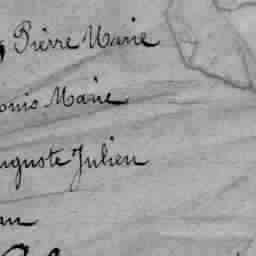 Pierre Marie
ouis Marie
uguste Julien